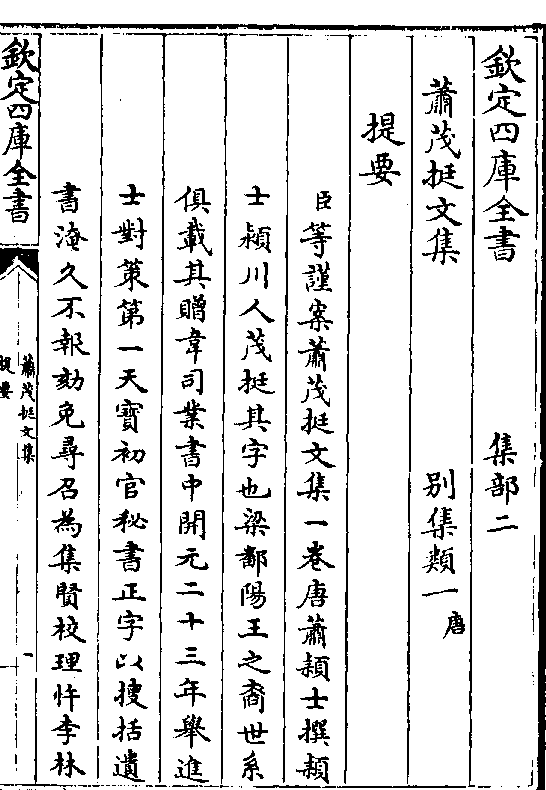 欽定四庫全書　　　　集部二
蕭茂挺文集　　　　別集類一唐
提要
臣等謹案蕭茂挺文集一卷唐蕭穎士撰穎
士穎川人茂挺其字也梁鄱陽王之裔世系
俱載其贈韋司業書中開元二十三年舉進
士對策第一天寶初官秘書正字以搜括遺
書淹久不報劾免尋召為集賢校理忤李林
欽定四庫全書
蕭茂挺文集
提要
一